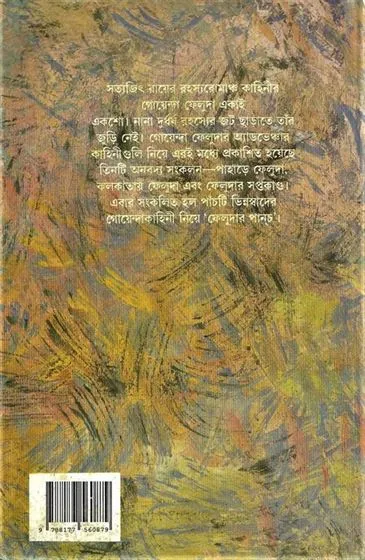 সত্যজিৎ রায়ের রহস্যরোমাঞ্চ কাহিনীর
গোয়েন্দা ফেলুদা একাই
একশো। নানা দুর্ধর্ষ রহস্যের জট ছাড়াতে তাঁর
জুড়ি নেই। গোয়েন্দা ফেলুদার অ্যাডভেঞ্চার
কাহিনীগুলি নিয়ে এরই মধ্যে প্রকাশিত হয়েছে
তিনটি অনবদ্য সংকলন—পাহাড়ে ফেলুদা,
কলকাতায় ফেলুদা এবং ফেলুদার সপ্তকাণ্ড।
এবার সংকলিত হল পাঁচটি ভিন্নস্বাদের
গোয়েন্দাকাহিনী নিয়ে 'ফেলুদার পানচ'।
9 788177 560879